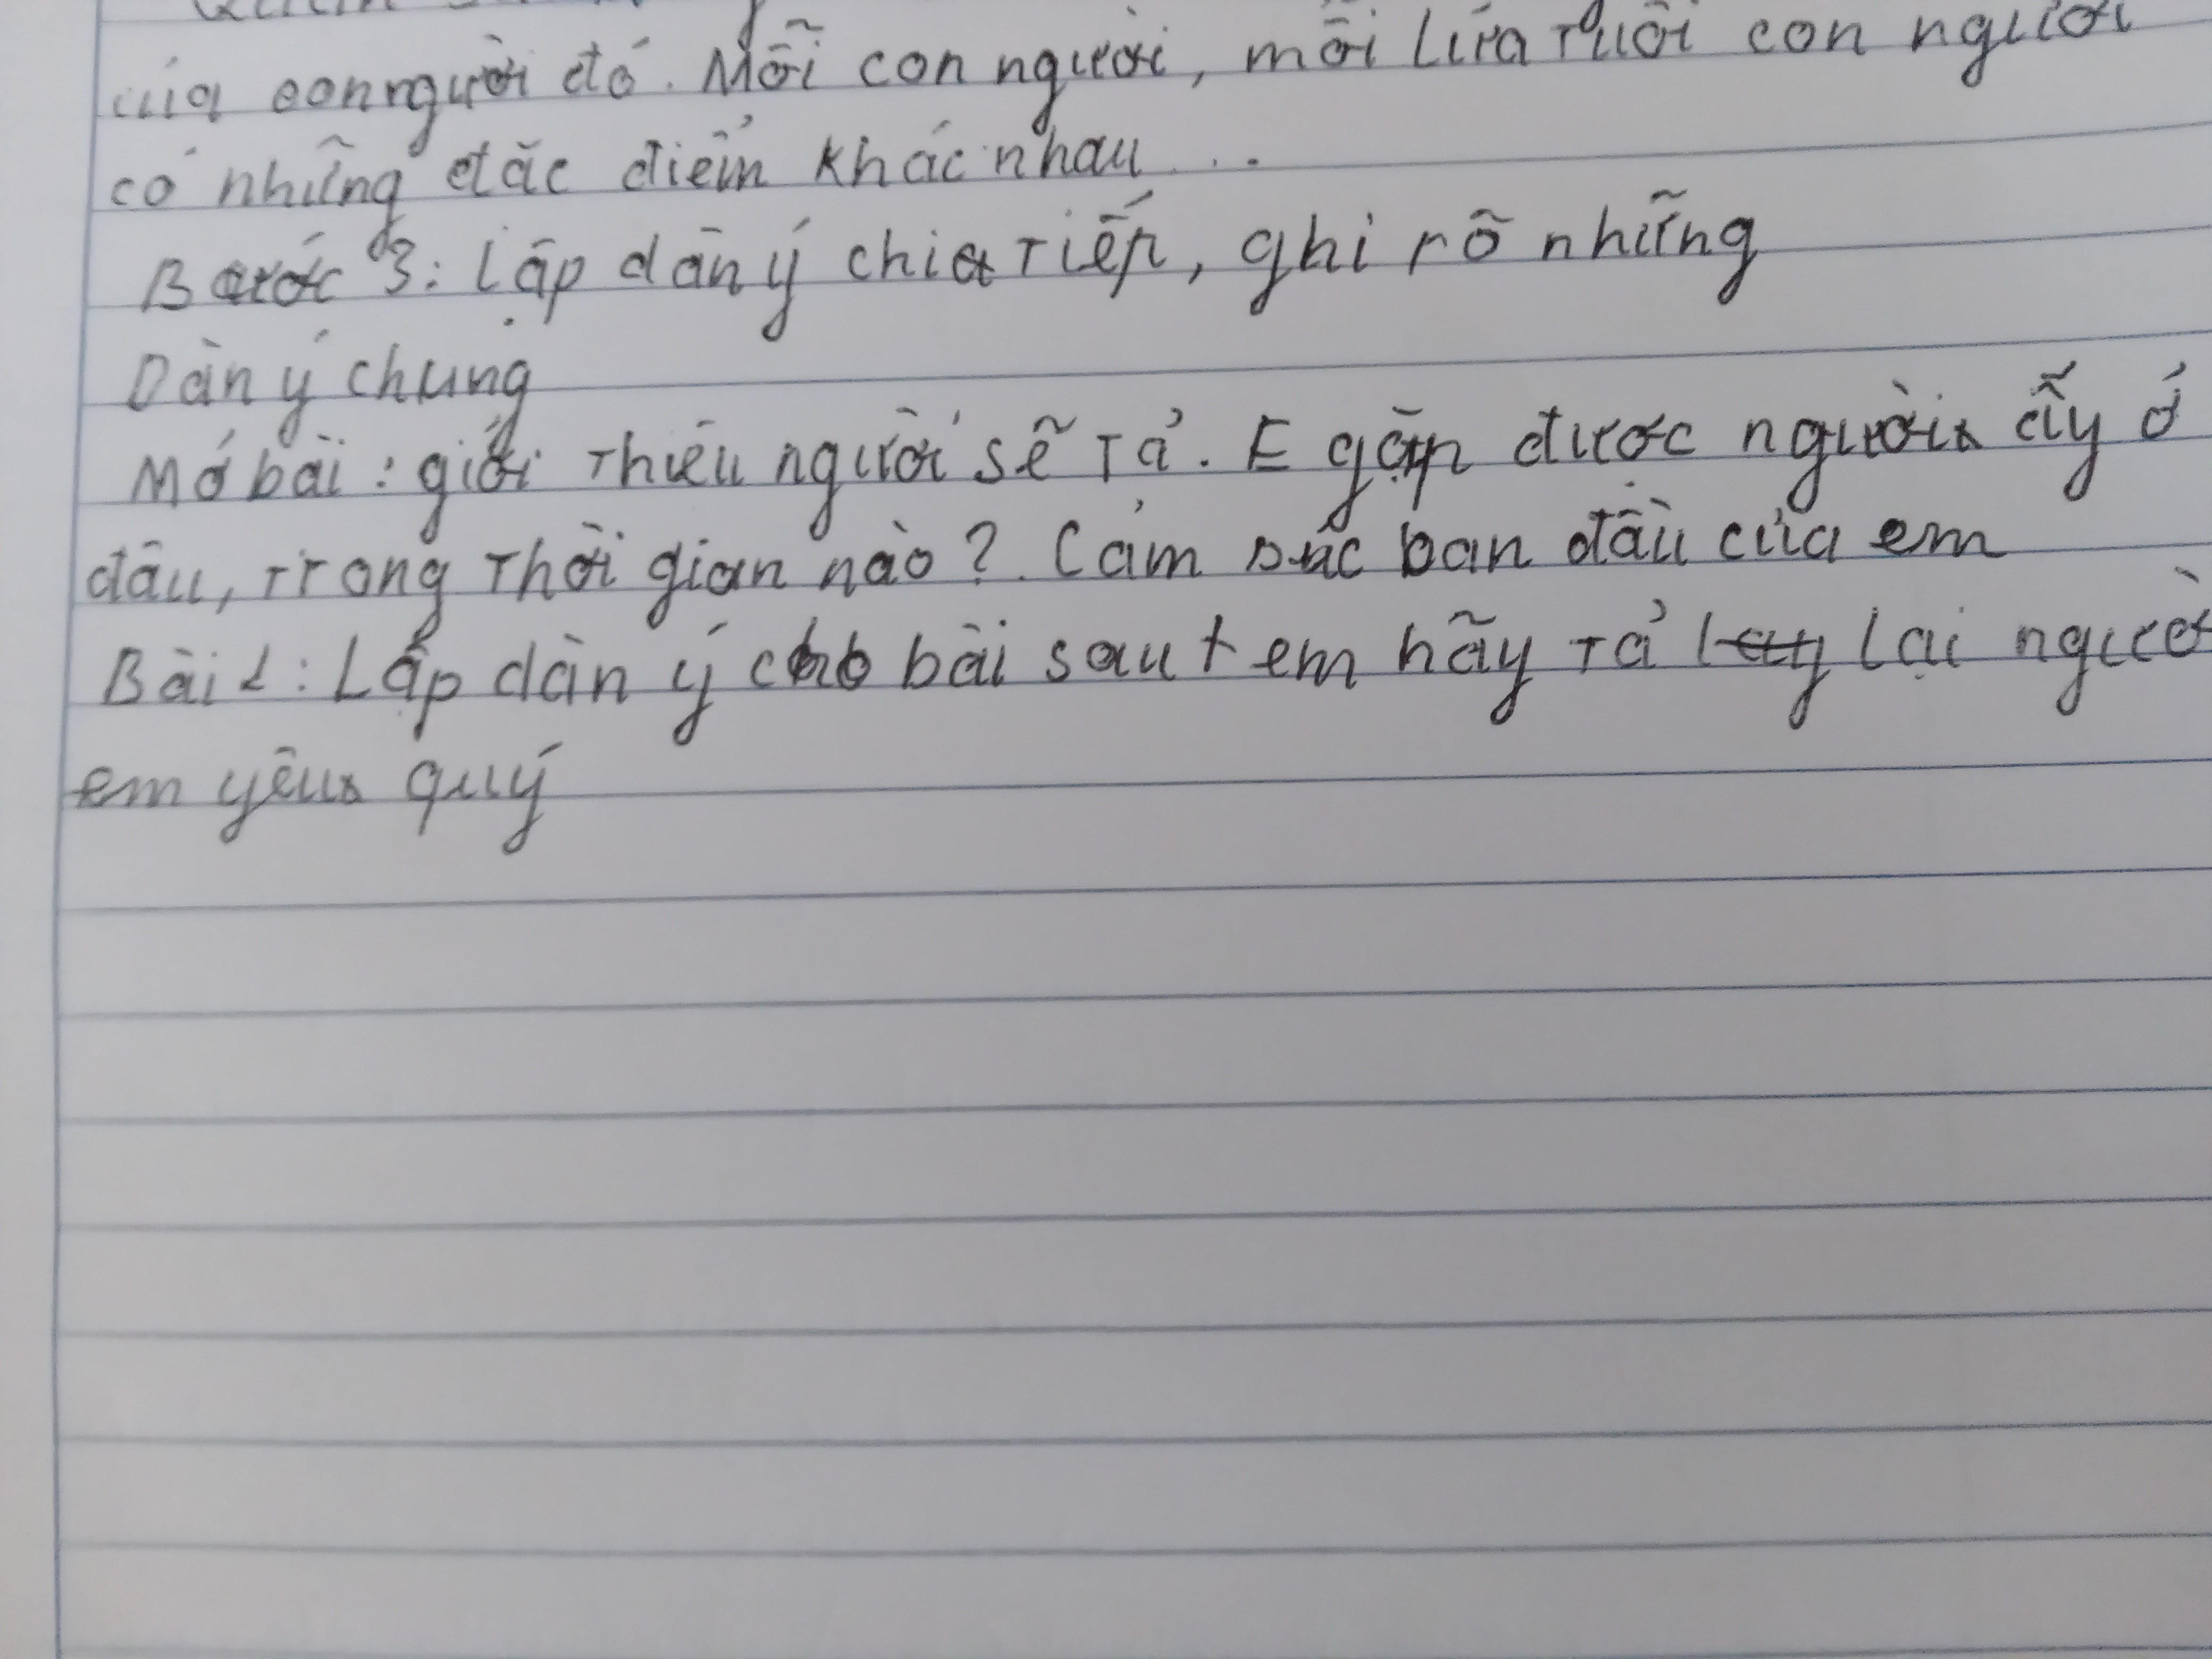 của con người đó. Mỗi con người, mỗi lứa tuổi con người
có những đặc điểm khác nhau...
Bước 3: Lập dàn ý chi tiết, ghi rõ những
Dàn ý chung
Mở bài: giới thiệu người sẽ tả. E gặp được người ấy ở
đâu, trong thời gian nào? Cảm xúc ban đầu của em
Bài 1: Lập dàn ý cho bài sau + em hãy tả lại người
em yêu quý